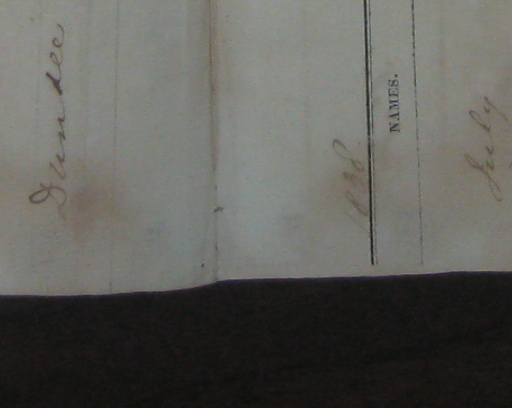 Dundee
1838.
NAMES.
July